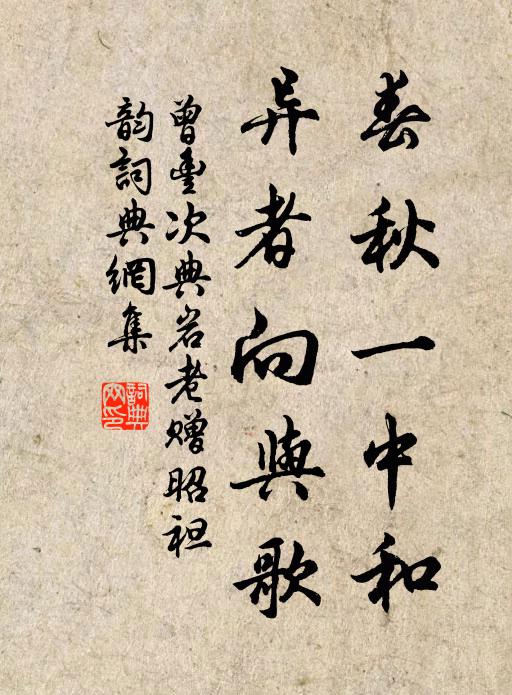 春秋一中和
异者向與歌
曾豊次典岩老贈昭祖
韵詞典網集
詞典网印